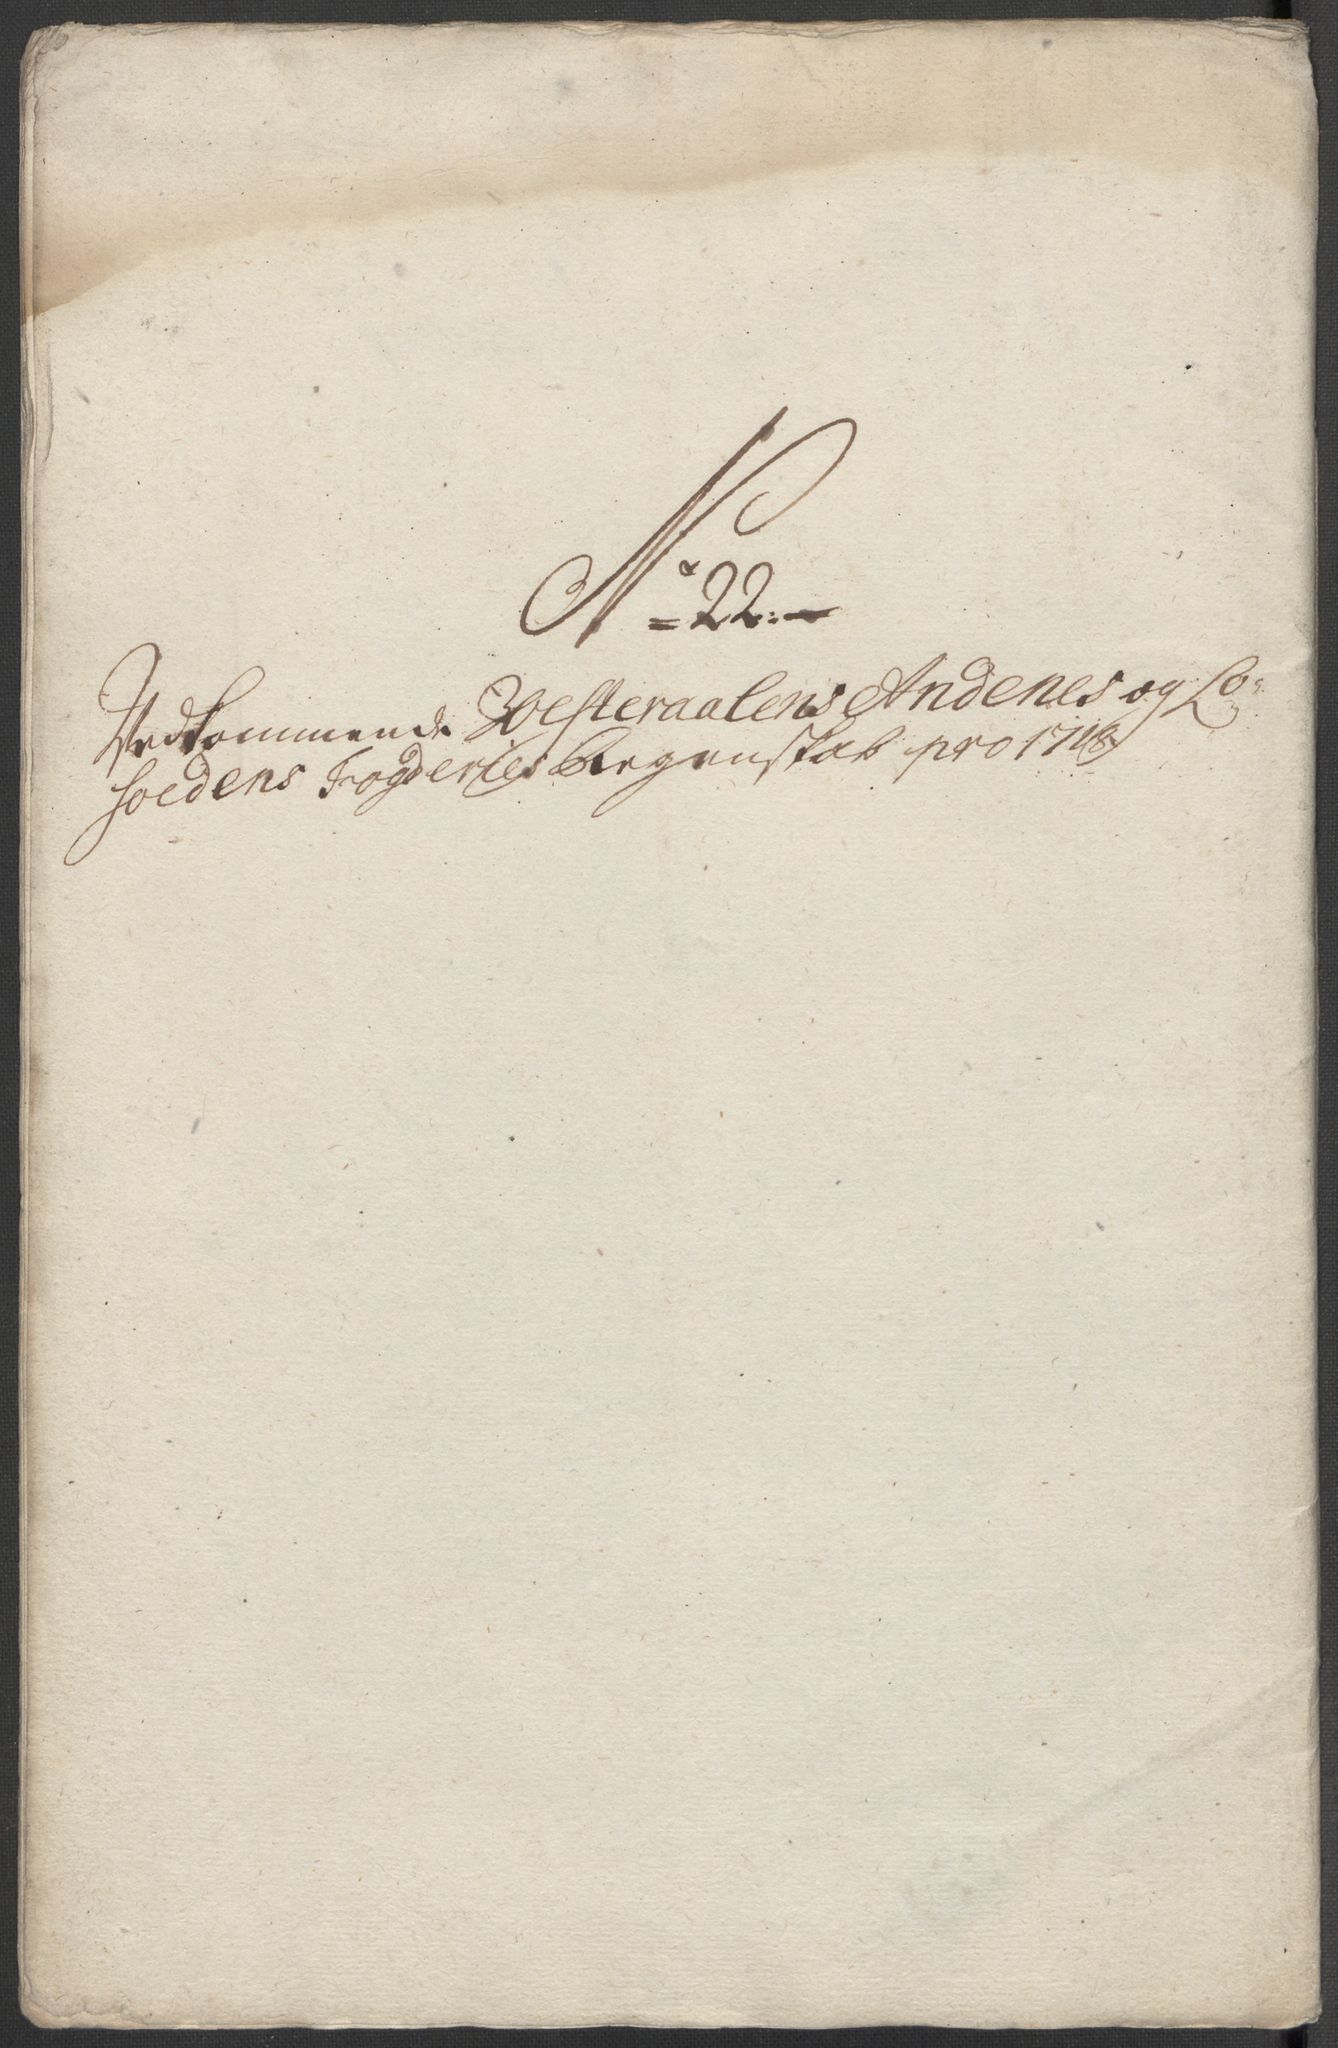 No 22.
Vedkommende Westeraalens Andenes og Lo-
foedens Fogderies Regenskab pro 1718